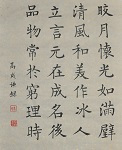 皎月懷光如滿璧
清風和美作冰人
立言元在成名後
品物常於窮理時
高式熊